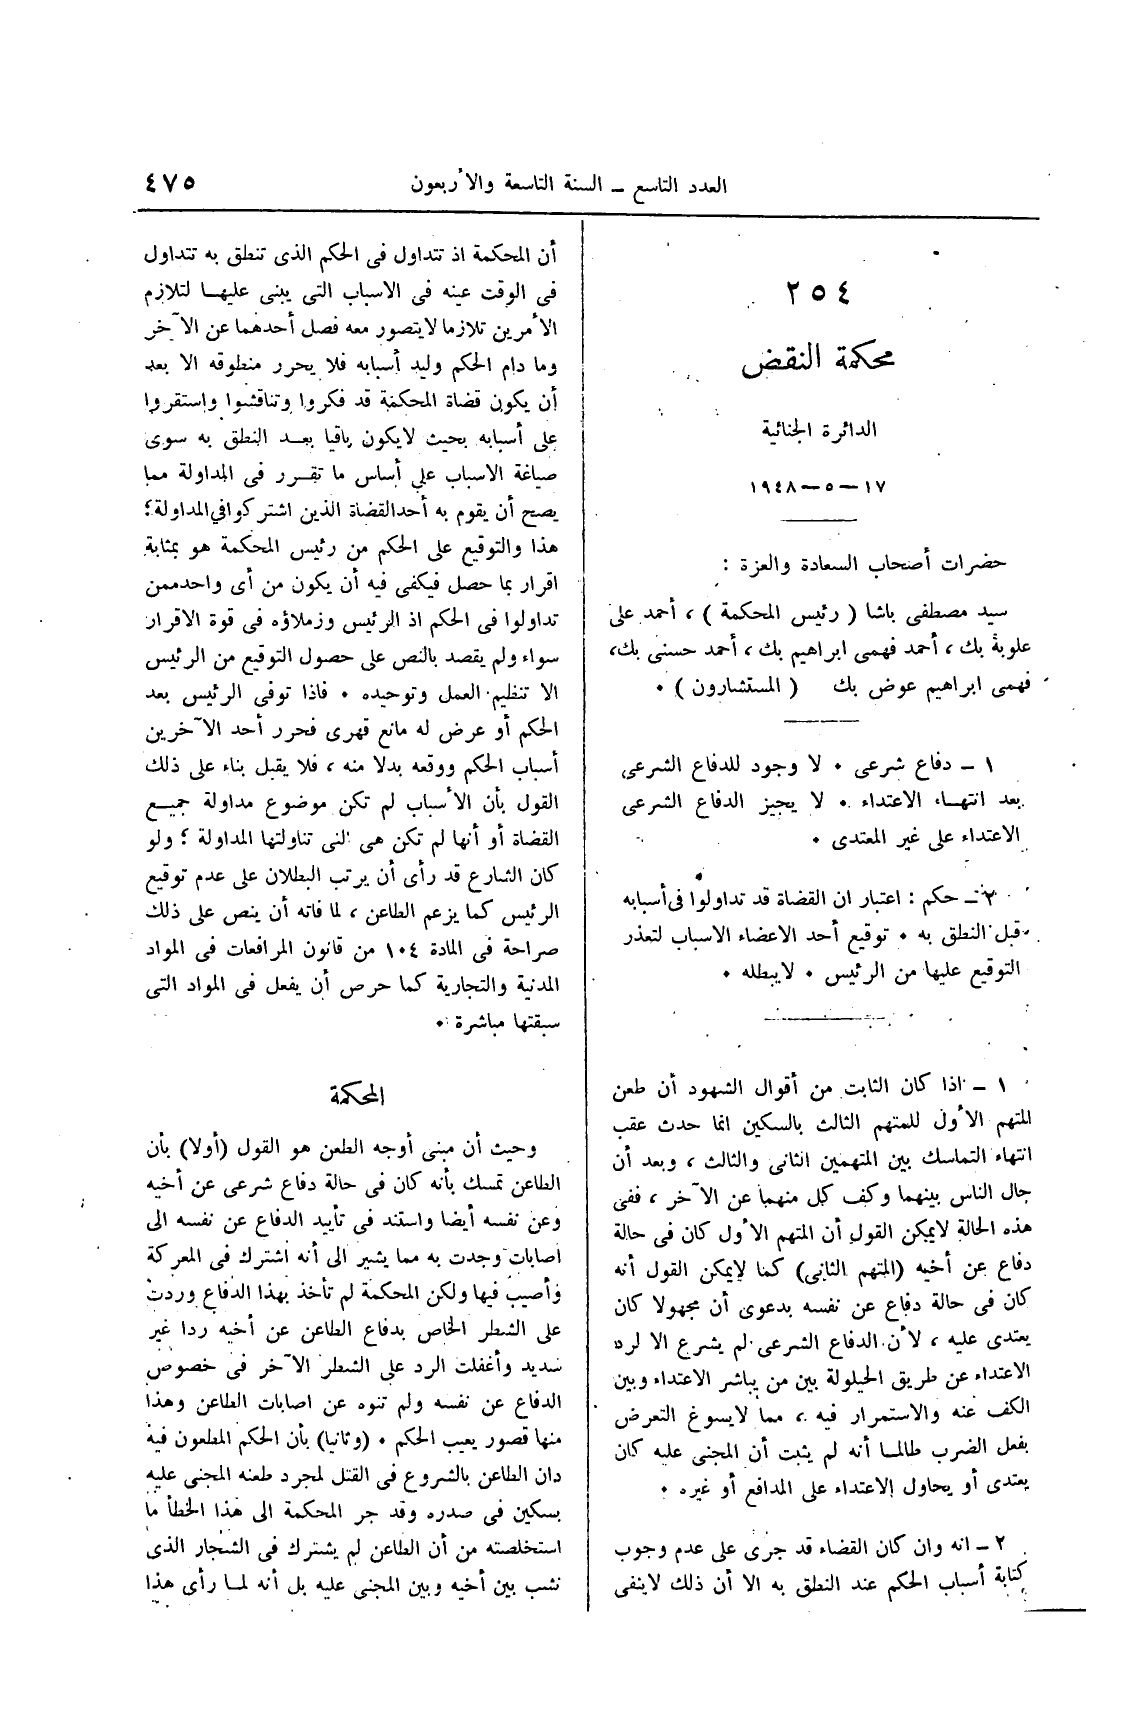 العدد التاسع – السنة التاسعة والأربعون
٤٧٥
٢٥٤
محكمة النقض
الدائرة الجنائية
١٧ – ٥ – ١٩٤٨
حضرات أصحاب السعادة والعزة :
سيد مصطفى باشا ( رئيس المحكمة ) ، أحمد على
علوبة بك ، أحمد فهمى ابراهيم بك ، أحمد حسنى بك،
فهمى ابراهيم عوض بك ( المستشارون ) ٠
١ – دفاع شرعى ٠ لا وجود للدفاع الشرعى
بعد انتهاء الاعتداء ٠ لا يجيز الدفاع الشرعى
الاعتداء على غير المعتدى ٠
٢ – حكم : اعتبار ان القضاة قد تداولوا فى أسبابه
قبل النطق به ٠ توقيع أحد الاعضاء الاسباب لتعذر
التوقيع عليها من الرئيس ٠ لا يبطله ٠
١ – اذا كان الثابت من أقوال الشهود أن طعن
المتهم الأول للمتهم الثالث بالسكين انما حدث عقب
انتهاء التماسك بين المتهمين الثانى والثالث ، وبعد أن
جال الناس بينهما وكف كل منهما عن الآخر ، ففى
هذه الحالة لايمكن القول أن المتهم الأول كان فى حالة
دفاع عن أخيه (المتهم الثانى) كما لايمكن القول أنه
كان فى حالة دفاع عن نفسه بدعوى أن مجهولا كان
يعتدى عليه ، لأن الدفاع الشرعى لم يشرع الا لرد
الاعتداء عن طريق الحيلولة بين من يباشر الاعتداء وبين
الكف عنه والاستمرار فيه ، مما لايسوغ التعرض
بفعل الضرب طالما أنه لم يثبت أن المجنى عليه كان
يعتدى أو يحاول الاعتداء على المدافع أو غيره ٠
٢ – انه وان كان القضاء قد جرى على عدم وجوب
كتابة أسباب الحكم عند النطق به الا أن ذلك لاينفى
أن المحكمة اذ تتداول فى الحكم الذى تنطق به تتداول
فى الوقت عينه فى الاسباب التى يبنى عليها لتلازم
الأمرين تلازما لايتصور معه فصل أحدهما عن الآخر
وما دام الحكم وليد أسبابه فلا يحرر منطوقه الا بعد
أن يكون قضاة المحكمة قد فكروا وتناقشوا واستقروا
على أسبابه بحيث لايكون باقيا بعد النطق به سوى
صياغة الاسباب على أساس ما تقرر فى المداولة مما
يصح أن يقوم به أحد القضاة الذين اشتركوا في المداولة؛
هذا والتوقيع على الحكم من رئيس المحكمة هو بمثابة
اقرار بما حصل فيكفى فيه أن يكون من أى واحد ممن
تداولوا فى الحكم اذ الرئيس وزملاؤه فى قوة الاقرار
سواء ولم يقصد بالنص على حصول التوقيع من الرئيس
الا تنظيم العمل وتوحيده ٠ فاذا توفى الرئيس بعد
الحكم أو عرض له مانع قهرى فحرر أحد الآخرين
أسباب الحكم ووقعه بدلا منه ، فلا يقبل بناء على ذلك
القول بأن الأسباب لم تكن موضوع مداولة جميع
القضاة أو أنها لم تكن هى التى تناولتها المداولة ؛ ولو
كان الشارع قد رأى أن يرتب البطلان على عدم توقيع
الرئيس كما يزعم الطاعن ، لما فاته أن ينص على ذلك
صراحة فى المادة ١٠٤ من قانون المرافعات فى المواد
المدنية والتجارية كما حرص أن يفعل فى المواد التى
سبقتها مباشرة ٠
المحكمة
وحيث أن مبنى أوجه الطعن هو القول (أولا) بأن
الطاعن تمسك بأنه كان فى حالة دفاع شرعى عن أخيه
وعن نفسه أيضا واستند فى تأييد الدفاع عن نفسه الى
اصابات وجدت به مما يشير الى أنه اشترك فى المعركة
وأصيب فيها ولكن المحكمة لم تأخذ بهذا الدفاع وردت
على الشطر الخاص بدفاع الطاعن عن أخيه ردا غير
سديد وأغفلت الرد على الشطر الآخر فى خصوص
الدفاع عن نفسه ولم تنوه عن اصابات الطاعن وهذا
منها قصور يعيب الحكم ٠ (وثانيا) بأن الحكم المطعون فيه
دان الطاعن بالشروع فى القتل لمجرد طعنه المجنى عليه
بسكين فى صدره وقد جر المحكمة الى هذا الخطأ ما
استخلصته من أن الطاعن لم يشترك فى الشجار الذى
نشب بين أخيه وبين المجنى عليه بل أنه لما رأى هذا